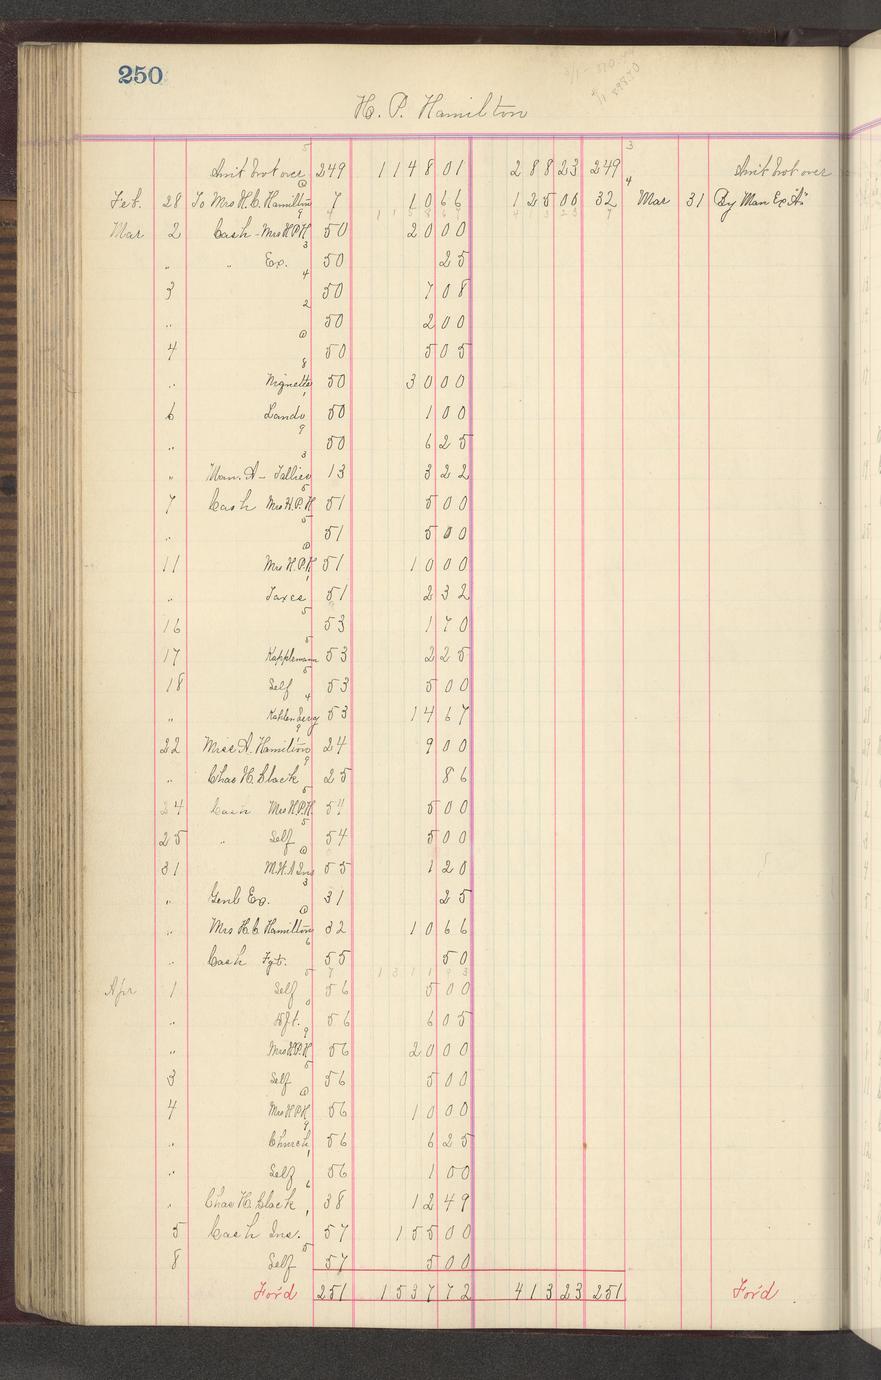 250
H. P. Hamilton
Amt brot over 249 1148 01 288 23 249 Amt brot over
Feb. 28 To Mrs H. C. Hamilton 7 10 66 125 00 32 Mar 31 By Man Ex "A"
Mar 2 Cash - Mrs H P H 50 20 00
" " Ex. 50 25
3 50 7 08
" 50 2 00
4 50 5 05
" Vignette 50 30 00
6 Lands 50 1 00
" 50 6 25
" Man. A - Tallies 13 3 22
7 Cash Mrs H. P. H 51 5 00
" 51 5 00
11 Mrs H. P. H 51 10 00
" Taxes 51 2 32
16 53 1 70
17 Kapplemann 53 2 25
18 Self 53 5 00
" Kahlenberg 53 14 67
22 Miss A. Hamilton 24 9 00
" Chas H. Black 25 86
24 Cash Mrs H. P. H. 54 5 00
25 " Self 54 5 00
31 M. H. A Ins 55 1 20
" Genl Ex. 31 25
" Mrs H. C. Hamilton 32 10 66
" Cash Fgt. 55 50
1311 93
Apr 1 Self 56 5 00
" 56 6 05
" Mrs H. P. H 56 20 00
3 Self 56 5 00
4 Mrs H P H 56 10 00
" Church 56 6 25
" Self 56 1 00
" Chas H. Black 38 12 49
5 Cash Ins. 57 155 00
8 Self 57 5 00
For'd 251 1537 72 413 23 251 For'd